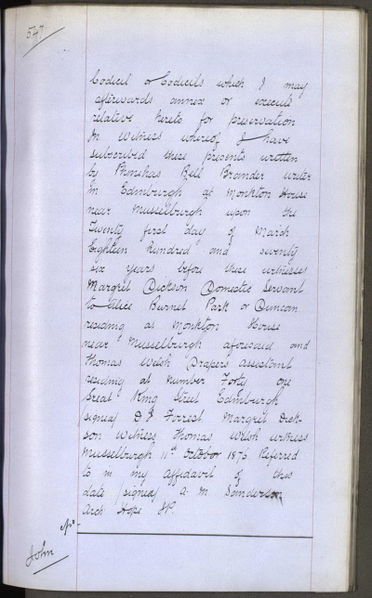 547
Codicil or Codicils which I may
afterwards annex or execute
relative hereto for preservation
In Witness whereof I have
subscribed these presents written
by Phinehas Bell Brander writer
in Edinburgh at Monkton House
near Musselburgh upon the
Twenty first day of March
Eighteen hundred and seventy
six years before these witnesses
Margret Dickson Domestic Servant
to Alice Burnet Park or Duncan
residing at Monkton House
near Musselburgh aforesaid and
Thomas Welsh Drapers assistant
residing at number Forty one
Great King Street Edinburgh
(signed) D Forrest Margret Dick-
son witness Thomas Welsh witness
Musselburgh 11th October 1876 Referred
to in my affidavit of this
date (signed) A. M. Sanderson
Arch Hope J.P.
John